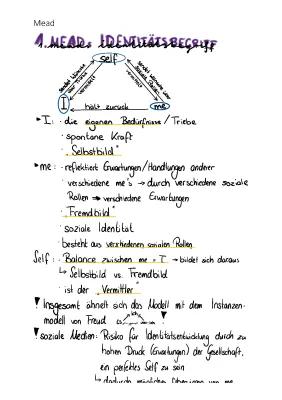 Mead
1. MEADs IDENTITÄTSBEGRIFF
self
sendet Wünsche
vermittelt
sendet
vermittelt
I hält zurück me
▸ I: · die eigenen Bedürfnisse / Triebe
· spontane Kraft
· „Selbstbild"
▸ me: · reflektiert Erwartungen/Handlungen anderer
verschiedene me's → durch verschiedene soziale
Rollen → verschiedene Erwartungen
· „Fremdbild"
· soziale Identität
· besteht aus verschiedenen sozialen Rollen
Self: · Balance zwischen me + I → bildet sich daraus
↳ Selbstbild vs. Fremdbild
· ist der „Vermittler"
! Insgesamt ähnelt sich das Modell mit dem Instanzen-
modell von Freud !
! soziale Medien: Risiko für Identitätsentwicklung durch zu
hohen Druck (Erwartungen) der Gesellschaft,
ein perfektes Self zu sein